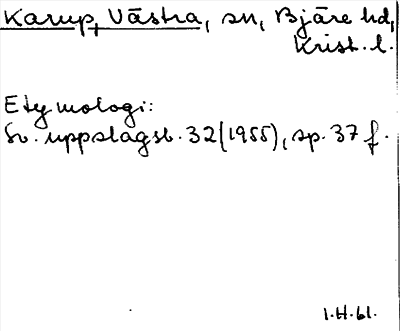 Karup, Västra, sn, Bjäre hd,
Krist. l.
Etymologi:
Sv. uppslagsb. 32 (1955), sp. 37 f.
1.H.61.